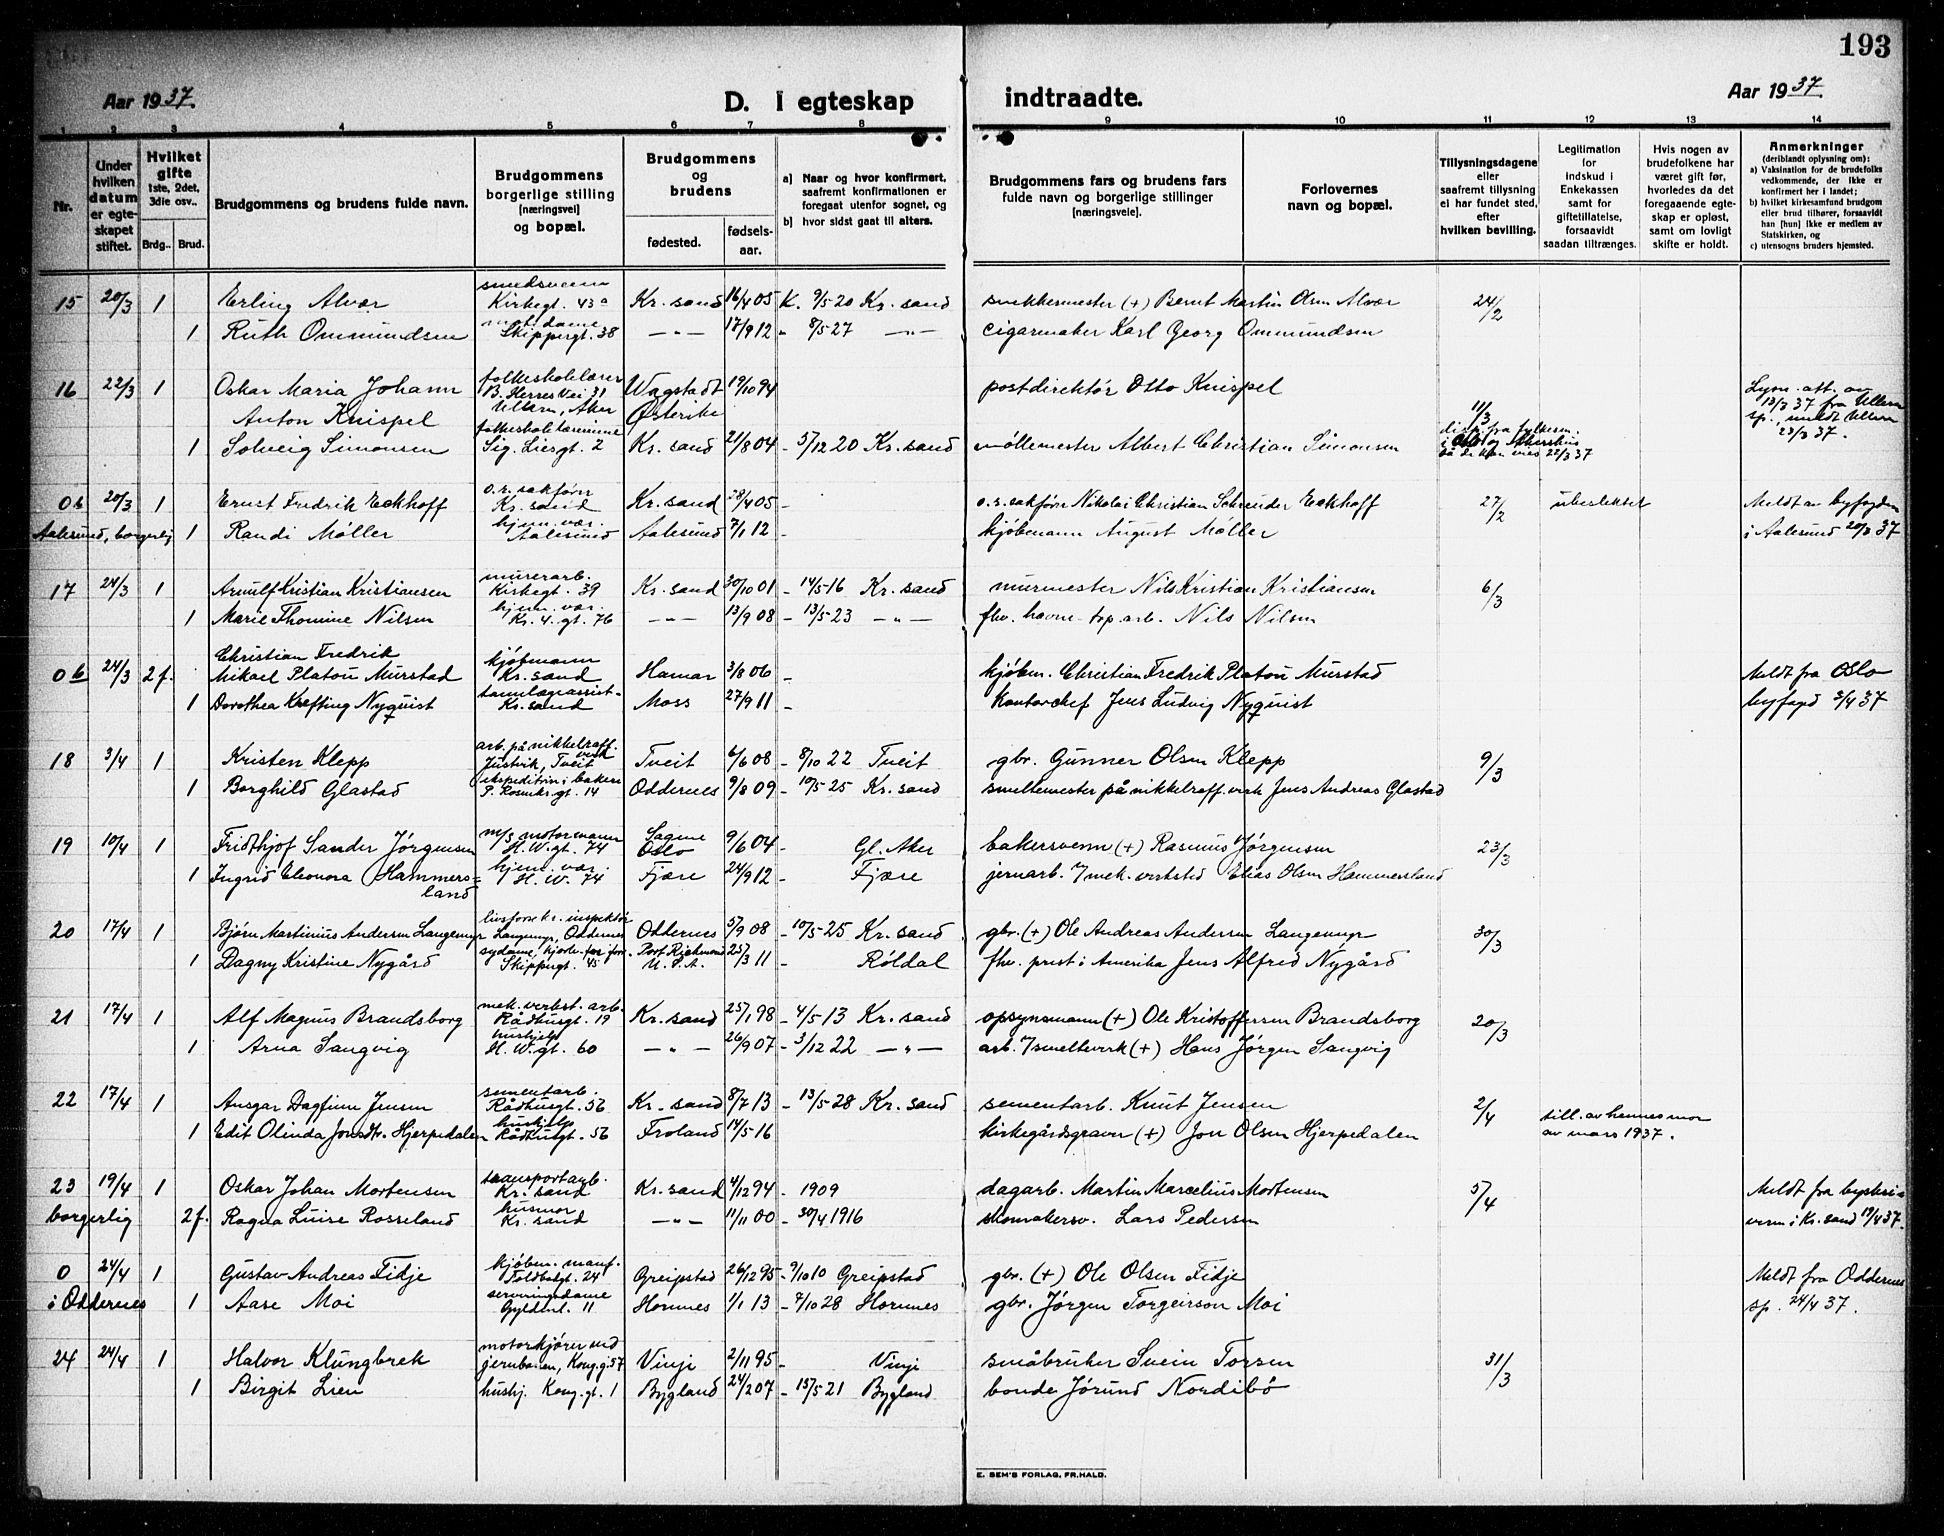 193
Aar 1937.
D. I egteskap indtraadte.
Aar 1937.
1 2 3 4 5 6 7 8 9 10 11 12 13 14
Nr.
Under hvilken datum er egteskapet stiftet.
Hvilket gifte 1ste, 2det, 3die osv..
Brdg.. Brud.
Brudgommens og brudens fulde navn.
Brudgommens borgerlige stilling [næringsvei] og bopæl.
Brudgommens og brudens
fødested.
fødselsaar.
a) Naar og hvor konfirmert, saafremt konfirmationen er foregaat utenfor sognet, og
b) hvor sidst gaat til alters.
Brudgommens fars og brudens fars fulde navn og borgerlige stillinger [næringsveie].
Forlovernes navn og bopæl.
Tillysningsdagene eller saafremt tillysning ei har fundet sted, efter hvilken bevilling.
Legitimation for indskud i Enkekassen samt for giftetillatelse, forsaavidt saadan tiltrænges.
Hvis nogen av brudefolkene har været gift før, hvorledes da det foregaaende egteskap er opløst, samt om lovligt skifte er holdt.
Anmerkninger (deriblandt oplysning om):
a) Vaksination for de brudefolks vedkommende, der ikke er konfirmert her i landet;
b) hvilket kirkesamfund brudgom eller brud tilhører, forsaavidt han [hun] ikke er medlem av Statskirken, og
c) utensogns bruders hjemsted.
15 20/3 1 Erling Alvær smedsvenn Kirkegt. 43a Kr.sand 16/4 05 K. 9/5-20 Kr.sand snekkermester (+) Bernt Martin Olsen Alvær 24/2
1 Ruth Ommundsen mot.dame Skippergt. 38 —"— 17/9 12 - 8/5 27 —"— cigarmaker Karl Georg Ommundsen
16 22/3 1 Oskar Maria Johann Anton Knispel folkeskolelærer B. Herres vei 31 Ullern, Aker Wagstadt Østerike 19/10 94 postdirektør Otto Knispel 11/3 Lysn. att. av 13/3 37 fra Ullern sp., meldt Ullern 23/3 37.
1 Solveig Simonsen folkeskolelærerinne Sig. Liesgt. 2 Kr.sand 21/8 04 - 5/12 20 Kr.sand møllemester Albert Christian Simonsen disp. fra fylkesm. i Oslo og Akershus 22/3 37
Ob 20/3 1 Ernst Fredrik Eckhoff o.r.sakfører Kr.sand Kr.sand 28/4 05 - o.r.sakfører Nikolai Christian Schreuder Eckhoff 27/2 ubeslektet Meldt av byfogden
Aalesund, borgerlig 1 Randi Møller hjem. vær. Aalesund Aalesund 7/1 12 kjøbmann August Møller i Aalesund 20/3 37
17 24/3 1 Arnulf Kristian Kristiansen murerarb. Kirkegt. 39 Kr.sand 30/10 01 - 14/5-16 Kr.sand murmester Nils Kristian Kristiansen 6/3
1 Marie Thomine Nilsen hjem. vær. Kr. 4. gt. 76 —"— 13/9 08 - 13/5 23 —"— fhv. havne-op.arb. Nils Nilsen
Ob 24/3 2f. Christian Fredrik Mikael Platou Murstad kjøbmann Kr.sand Hamar 3/8 06 - kjøbm. Christian Fredrik Platou Murstad Meldt fra Oslo
1 Dorothea Krefting Nyquist tannlægeassist. Kr.sand Moss 27/9 11 - Kontorchef Jens Ludvig Nyquist byfogd 3/4 37
18 3/4 1 Kristen Klepp arb. på nikkelraff.verk Justvik, Tveit Tveit 6/6 08 - 8/10 22 Tveit gbr. Gunner Olsen Klepp 9/3
1 Borghild Glastad ekspeditrise i bakeri P. Rosenkr.gt. 14 Oddernes 9/8 09 - 10/5-25 Kr.sand smeltemester på nikkelraff.verk Jens Andreas Glastad
19 10/4 1 Fridthjof Sander Jørgensen m/s motormann H.W.gt. 74 Sagene Oslo 9/6 04 Gl. Aker bakersvenn (+) Rasmus Jørgensen 23/3
1 Ingrid Eleonora Hammersland hjem. vær. H.W. 74 Fjære 24/9 12 Fjære jernarb. v/mek. verksted Elias Olsen Hammersland
20 17/4 1 Bjørn Martinius Andersen Langemyr livsforsikr. inspektør Langemyr, Oddernes Oddernes 5/9 08 - 10/5-25 Kr.sand gbr. (+) Ole Andreas Andersen Langemyr 30/3
1 Dagny Kristine Nygård sydame, Skippergt. 45 Port Richmond U.S.A. 25/3 11 - Røldal fhv. prest i Amerika Jens Alfred Nygård
21 17/4 1 Alf Magnus Brandsborg mek. verkst. arb. Rådhusgt. 19 Kr.sand 25/1 98 - 4/5 13 Kr.sand opsynsmann (+) Ole Kristoffersen Brandsborg 20/3
1 Arna Sangvig hushjelp H.W.gt. 60 —"— 26/9 07 - 3/12 22 —"— arb. v/smelteverk (+) Hans Jørgen Sangvig
22 17/4 1 Ansgar Dagfinn Jensen sementarb. Rådhusgt. 56 Kr.sand 8/7 13 - 13/5-28 Kr.sand sementarb. Knut Jensen 2/4 till. av hennes mor
1 Edit Olinda Jonsdtr. Hjerpedalen hushjelp Rådhusgt. 56 Froland 14/5-16 kirkegårdsgraver (+) Jon Olsen Hjerpedalen av mars 1937.
23 19/4 1 Oskar Johan Mortensen transportarb. Kr.sand Kr.sand 4/12 94 - 1909 dagarb. Martin Marcelius Mortensen 5/4 Meldt fra byskri-
borgerlig 2f. Ragna Luise Rosseland husmor Kr.sand —"— 11/11 00 - 30/4 1916 skomakersv. Lars Pedersen veren i Kr.sand 19/4 37.
O 24/4 1 Gustav Andreas Fidje kjøbm. manuf. Toldbodgt. 24 Greipstad 26/12 95 - 9/10 10 Greipstad gbr. (+) Ole Olsen Fidje Meldt fra Oddernes
i Oddernes 1 Aase Moi serveringsdame Gyldenl. 11 Hornnes 1/1 13 - 7/10 28 Hornnes gbr. Jørgen Torgeirson Moi sp. 24/4 37.
24 24/4 1 Halvor Klungbrek motorkjører ved jernbanen, Kong.g. 57 Vinje 2/11 95 - Vinje småbruker Svein Torsen 31/3
1 Birgit Lien hushj. Kong.gt. 1 Bygland 24/2 07 - 15/5 21 Bygland bonde Jørund Nordibø
E. SEM'S FORLAG, FR.HALD.